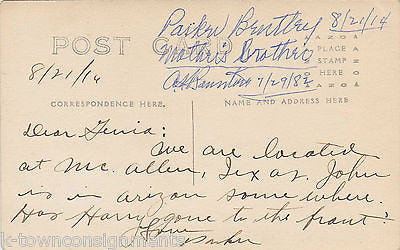 Parker Bentley 8/21/14
Mother's Brother
7/29/82
POST CARD
8/21/16
AZO
PLACE
STAMP
HERE
AZO
CORRESPONDENCE HERE.
NAME AND ADDRESS HERE.
Dear Genia:
We are located
at Mc. Allen, Texas. John
is in arizon some where.
Has Harry gone to the front?
Parker
k-townconsignments